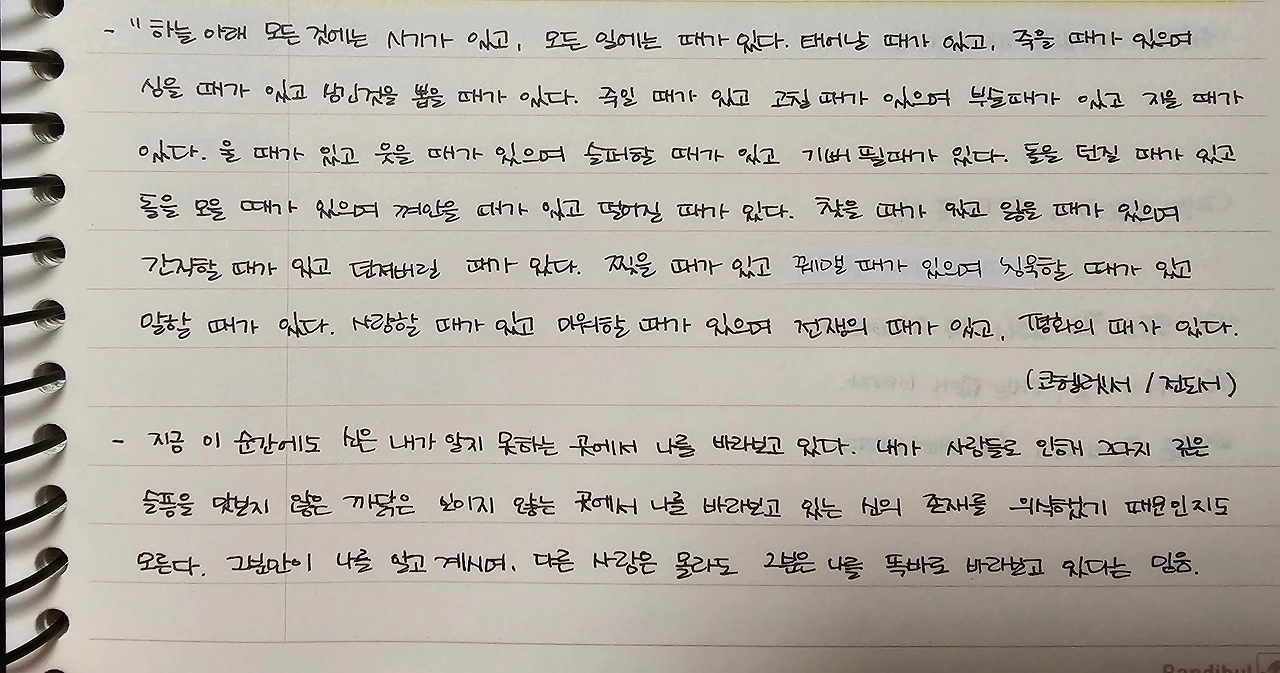 - " 하늘 아래 모든 것에는 시기가 있고, 모든 일에는 때가 있다. 태어날 때가 있고, 죽을 때가 있으며
심을 때가 있고 심긴것을 뽑을 때가 있다. 죽일 때가 있고 고칠 때가 있으며 부술때가 있고 지을 때가
있다. 울 때가 있고 웃을 때가 있으며 슬퍼할 때가 있고 기뻐 뛸때가 있다. 돌을 던질 때가 있고
돌을 모을 때가 있으며 껴안을 때가 있고 떨어질 때가 있다. 찾을 때가 있고 잃을 때가 있으며
간직할 때가 있고 던져버릴 때가 있다. 찢을 때가 있고 꿰맬 때가 있으며 침묵할 때가 있고
말할 때가 있다. 사랑할 때가 있고 미워할 때가 있으며 전쟁의 때가 있고, 평화의 때가 있다.
(코헬렛서 / 전도서)
- 지금 이 순간에도 신은 내가 알지 못하는 곳에서 나를 바라보고 있다. 내가 사람들로 인해 그다지 깊은
슬픔을 맛보지 않은 까닭은 보이지 않는 곳에서 나를 바라보고 있는 신의 존재를 의식했기 때문인지도
모른다. 그분만이 나를 알고 계시며, 다른 사람은 몰라도 그분은 나를 똑바로 바라보고 있다는 믿음.